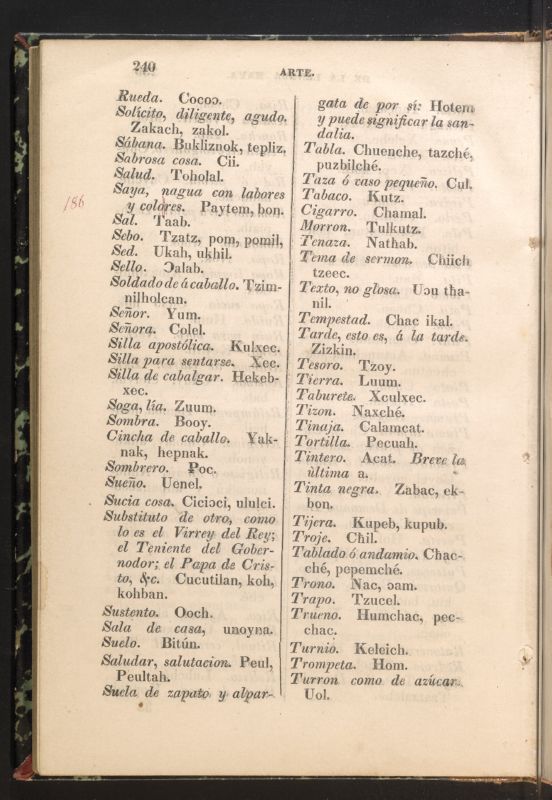 240
ARTE.
186
Rueda. Cocoɔ.
Solícito, diligente, agudo.
Zakach, zakol.
Sábana. Bukliznok, tepliz.
Sabrosa cosa. Cii.
Salud. Toholal.
Saya, nagua con labores
y colores. Paytem, bon.
Sal. Taab.
Sebo. Tzatz, pom, pomil,
Sed. Ukah, ukhil.
Sello. Ɔalab.
Soldado de á caballo. Tzim-
nilholcan.
Señor. Yum.
Señora. Colel.
Silla apostólica. Kulxec.
Silla para sentarse. Xec.
Silla de cabalgar. Hekeb-
xec.
Soga, lía. Zuum.
Sombra. Booy.
Cincha de caballo. Kak-
nak, hepnak.
Sombrero. Ꝑoc.
Sueño. Uenel.
Sucia cosa. Ciciɔci, ululci.
Substituto de otro, como
lo es el Virrey del Rey;
el Teniente del Gober-
nodor; el Papa de Cris-
to, &c. Cucutilan, koh,
kohban.
Sustento. Ooch.
Sala de casa, unoyna.
Suelo. Bitún.
Saludar, salutacion. Peul,
Peultah.
Suela de zapato y alpar-
gata de por sí: Hotem
y puede significar la san-
dalia.
Tabla. Chuenche, tazché,
puzbilché.
Taza ó vaso pequeño. Cul.
Tabaco. Kutz.
Cigarro. Chamal.
Morron. Tulkutz.
Tenaza. Nathab.
Tema de sermon. Chiich
tzeec.
Texto, no glosa. Uɔu tha-
nil.
Tempestad. Chac ikal.
Tarde, esto es, á la tarde.
Zizkin.
Tesoro. Tzoy.
Tierra. Luum.
Taburete. Xculxec.
Tizon. Naxché.
Tinaja. Calamcat.
Tortilla. Pecuah.
Tintero. Acat. Breve la
última a.
Tinta negra. Zabac, ek-
bon.
Tijera. Kupeb, kupub.
Troje. Chil.
Tablado ó andamio. Chac-
ché, pepemché.
Trono. Nac, ɔam.
Trapo. Tzucel.
Trueno. Humchac, pec-
chac.
Turnio. Keleich.
Trompeta. Hom.
Turron como de azúcar.
Uol.